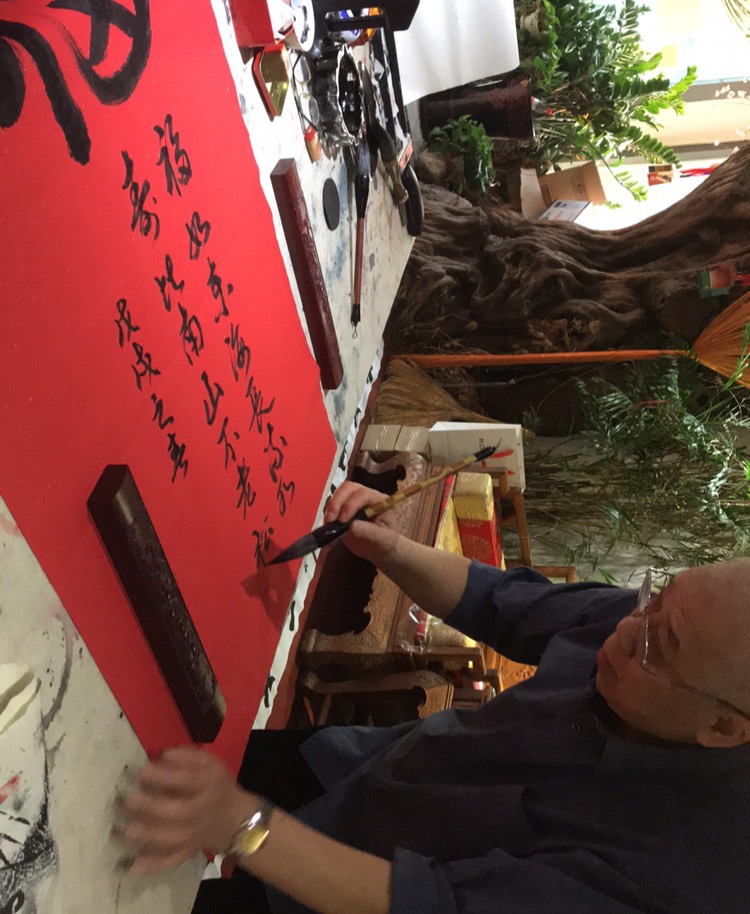 福如东海長流水
寿比南山不老松
戊戌之春